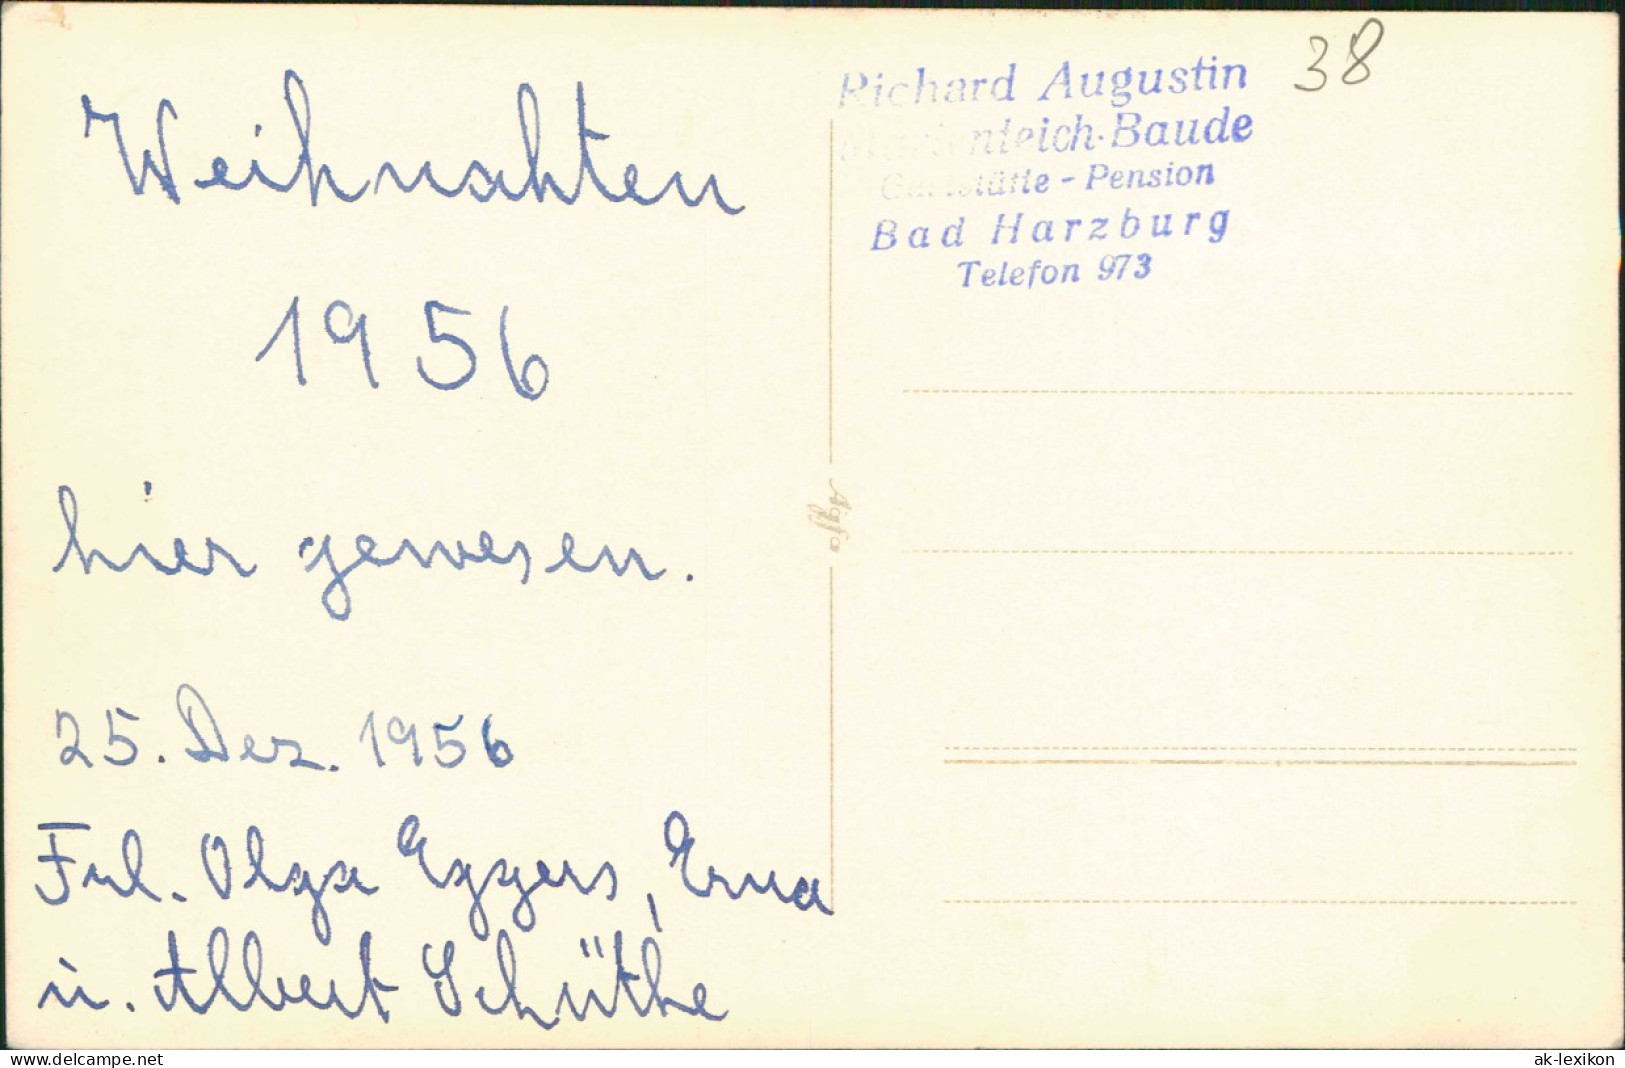 Weihnachten
1956
hier gewesen.
25. Dez. 1956
Frl. Olga Eggers, Erna
u. Albert Schüthe
Richard Augustin
Marienteich-Baude
Gaststätte - Pension
Bad Harzburg
Telefon 973
38
Agfa
www.delcampe.net
ak-lexikon